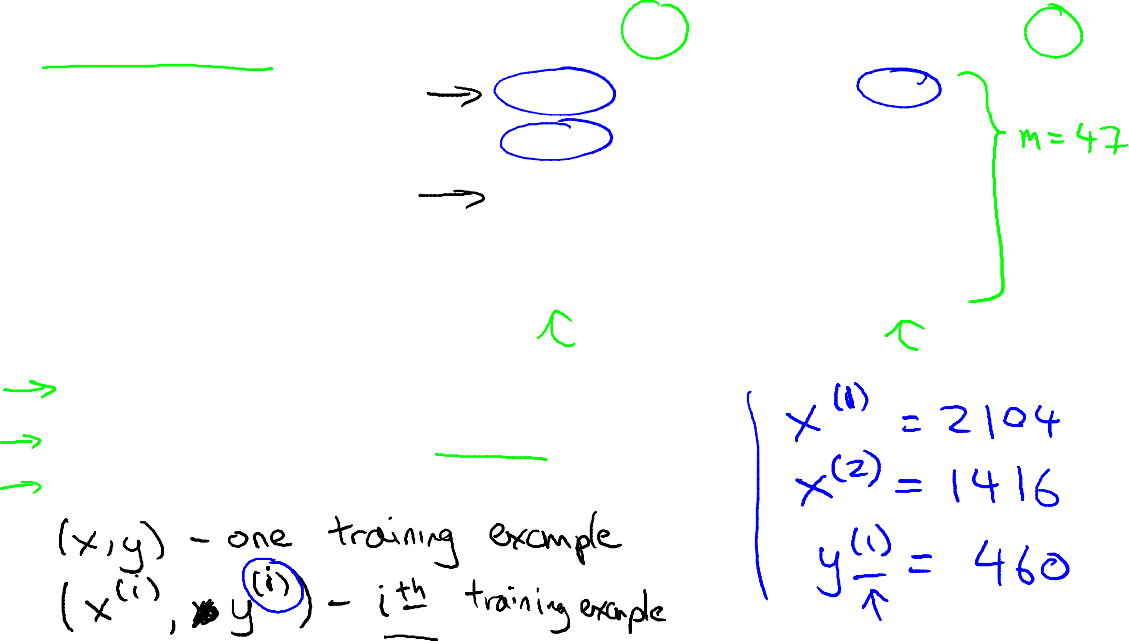 m = 47
(x, y) - one training example
(x^(i), y^(i)) - i^th training example
x^(1) = 2104
x^(2) = 1416
y^(1) = 460